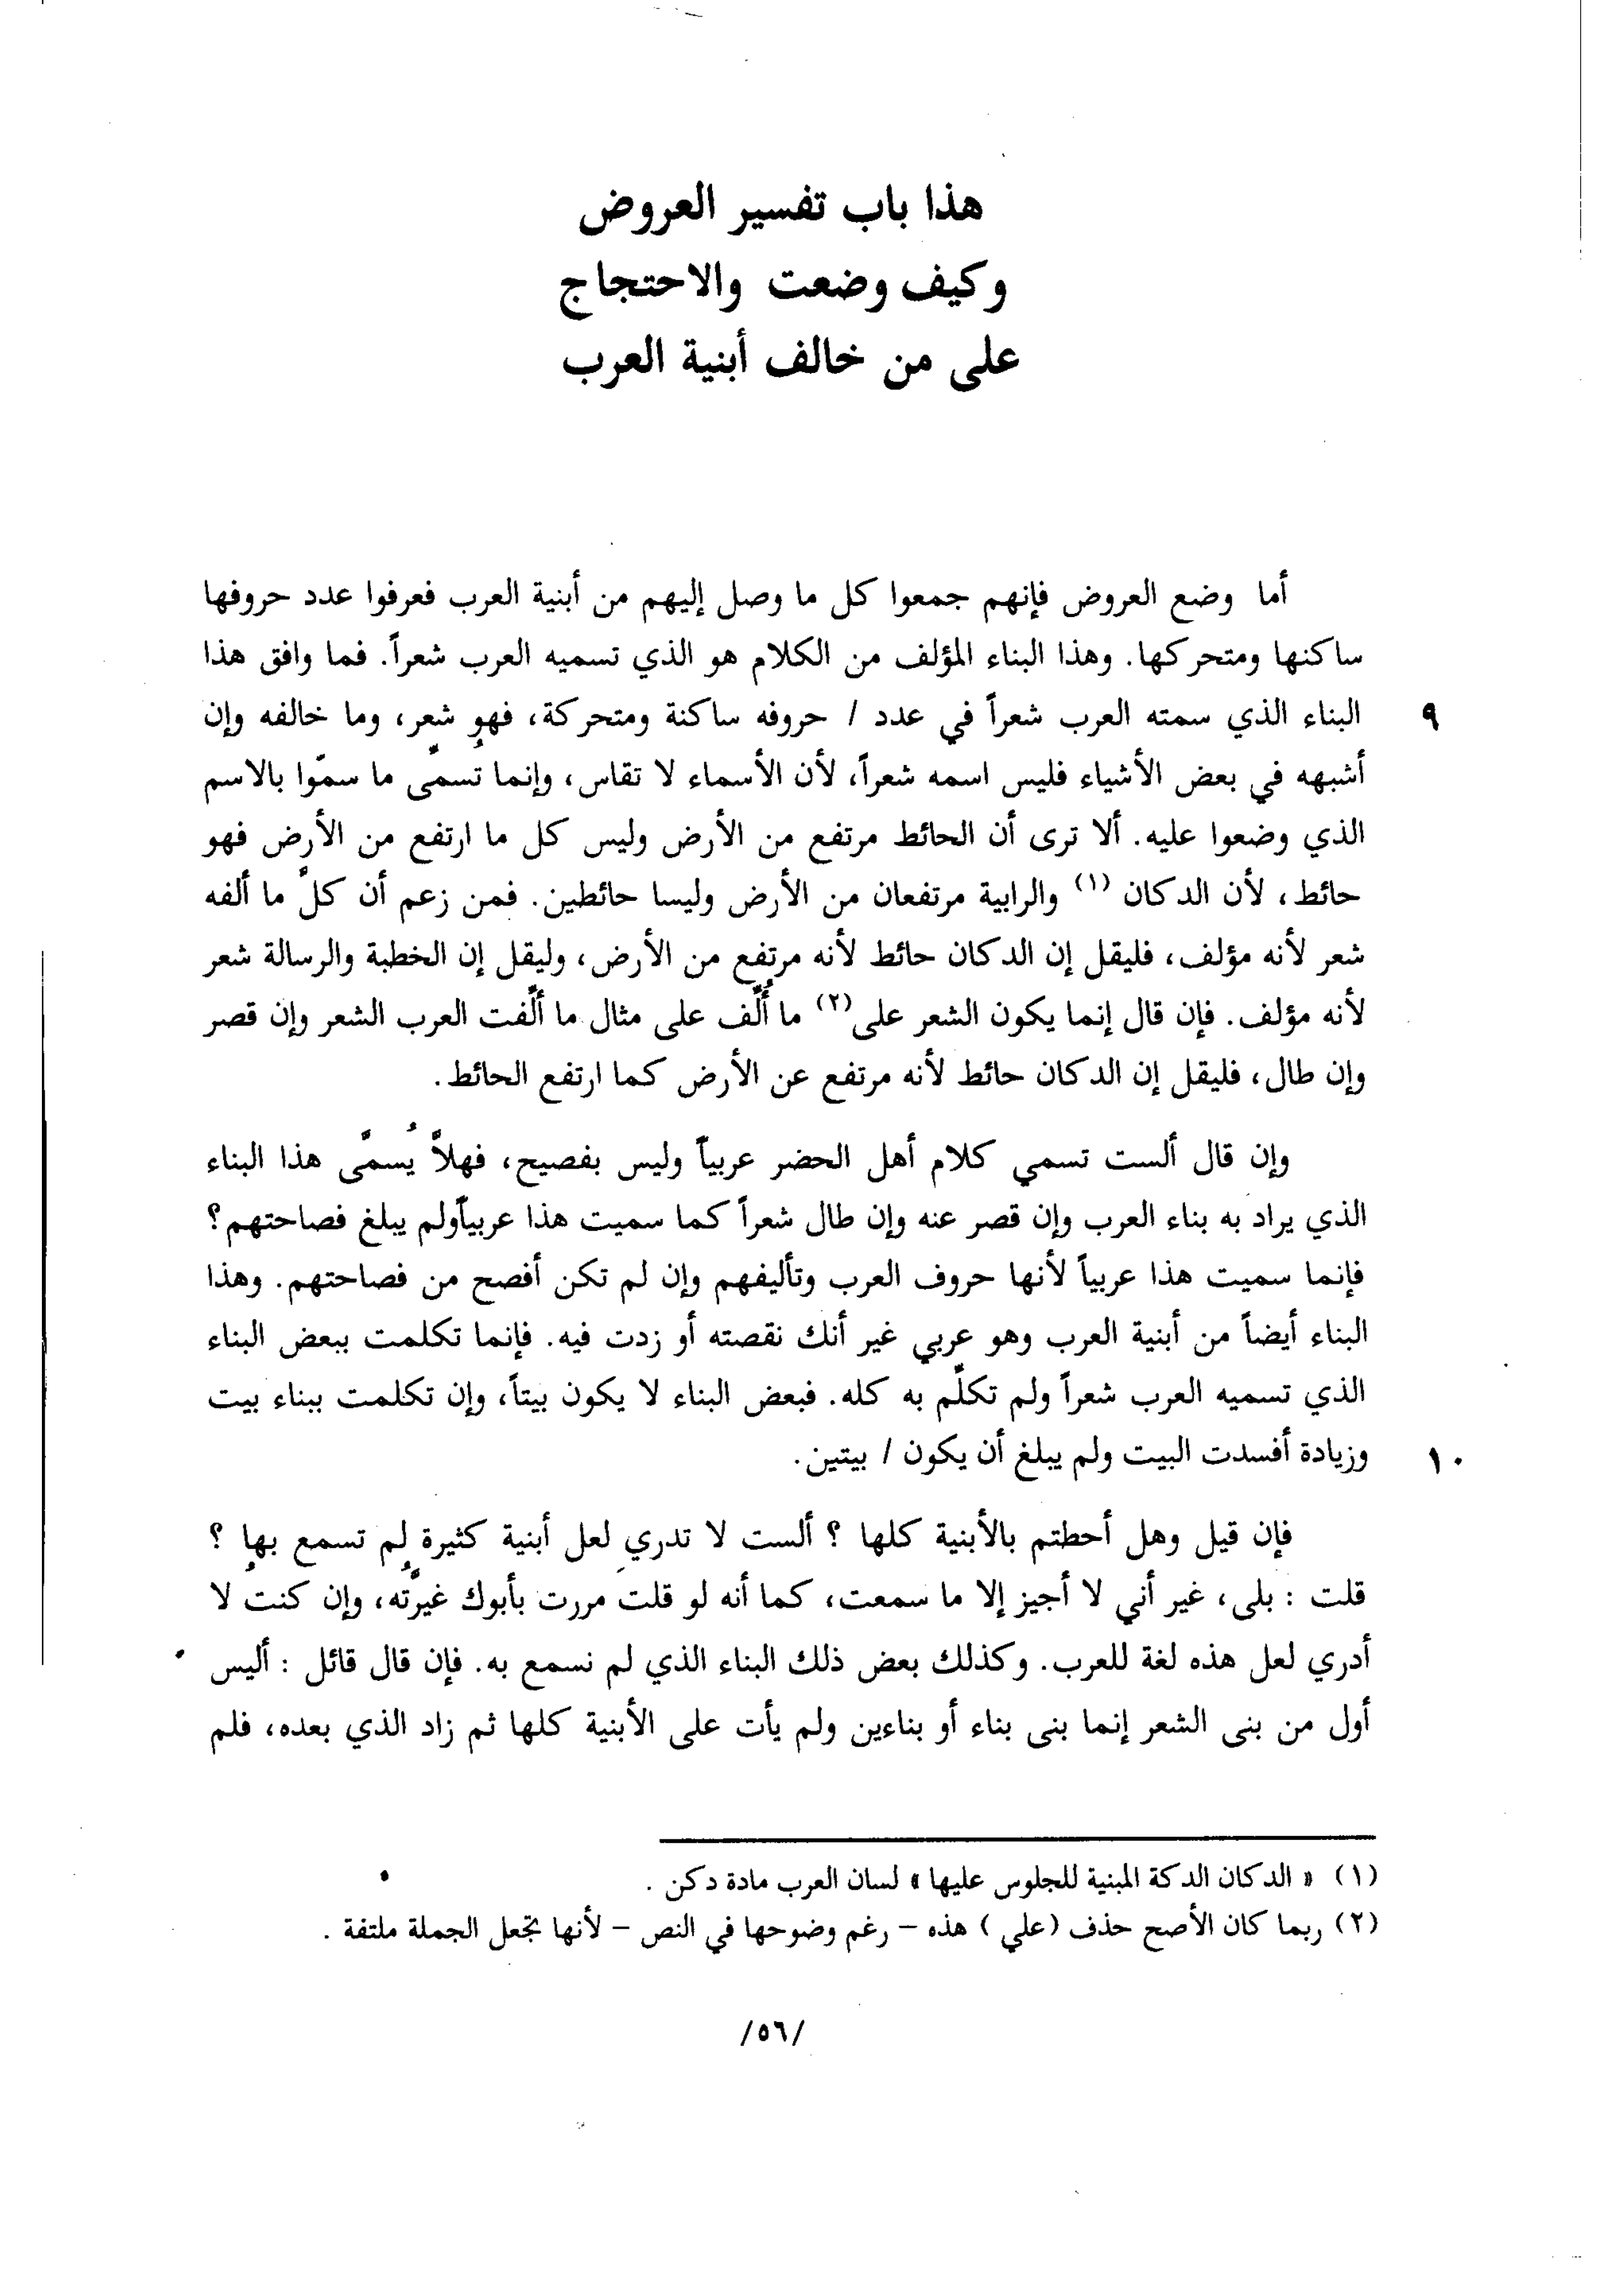 هذا باب تفسير العروض
وكيف وضعت والاحتجاج
على من خالف أبنية العرب
أما وضع العروض فإنهم جمعوا كل ما وصل إليهم من أبنية العرب فعرفوا عدد حروفها
ساكنها ومتحركها. وهذا البناء المؤلف من الكلام هو الذي تسميه العرب شعراً. فما وافق هذا
٩ البناء الذي سمته العرب شعراً في عدد / حروفه ساكنة ومتحركة، فهو شعر، وما خالفه وإن
أشبهه في بعض الأشياء فليس اسمه شعراً، لأن الأسماء لا تقاس، وإنما تُسمَّى ما سمّوا بالاسم
الذي وضعوا عليه. ألا ترى أن الحائط مرتفع من الأرض وليس كل ما ارتفع من الأرض فهو
حائط، لأن الدكان (١) والرابية مرتفعان من الأرض وليسا حائطين. فمن زعم أن كلَّ ما ألفه
شعر لأنه مؤلف، فليقل إن الدكان حائط لأنه مرتفع من الأرض، وليقل إن الخطبة والرسالة شعر
لأنه مؤلف. فإن قال إنما يكون الشعر على(٢) ما أُلِّف على مثال ما ألَّفت العرب الشعر وإن قصر
وإن طال، فليقل إن الدكان حائط لأنه مرتفع عن الأرض كما ارتفع الحائط.
وإن قال ألست تسمي كلام أهل الحضر عربياً وليس بفصيح، فهلاَّ يُسمَّى هذا البناء
الذي يراد به بناء العرب وإن قصر عنه وإن طال شعراً كما سميت هذا عربياًولم يبلغ فصاحتهم؟
فإنما سميت هذا عربياً لأنها حروف العرب وتأليفهم وإن لم تكن أفصح من فصاحتهم. وهذا
البناء أيضاً من أبنية العرب وهو عربي غير أنك نقصته أو زدت فيه. فإنما تكلمت ببعض البناء
الذي تسميه العرب شعراً ولم تكلَّم به كله. فبعض البناء لا يكون بيتاً، وإن تكلمت ببناء بيت
١٠ وزيادة أفسدت البيت ولم يبلغ أن يكون / بيتين.
فإن قيل وهل أحطتم بالأبنية كلها ؟ ألست لا تدري لعل أبنية كثيرة لم تسمع بها ؟
قلت : بلى، غير أني لا أجيز إلا ما سمعت، كما أنه لو قلت مررت بأبوك غيَّرتُه، وإن كنت لا
أدري لعل هذه لغة للعرب. وكذلك بعض ذلك البناء الذي لم نسمع به. فإن قال قائل : أليس
أول من بنى الشعر إنما بنى بناء أو بناءين ولم يأت على الأبنية كلها ثم زاد الذي بعده، فلم
(١) « الدكان الدكة المبنية للجلوس عليها » لسان العرب مادة دكن .
(٢) ربما كان الأصح حذف (على ) هذه – رغم وضوحها في النص – لأنها تجعل الجملة ملتفة .
/٥٦/